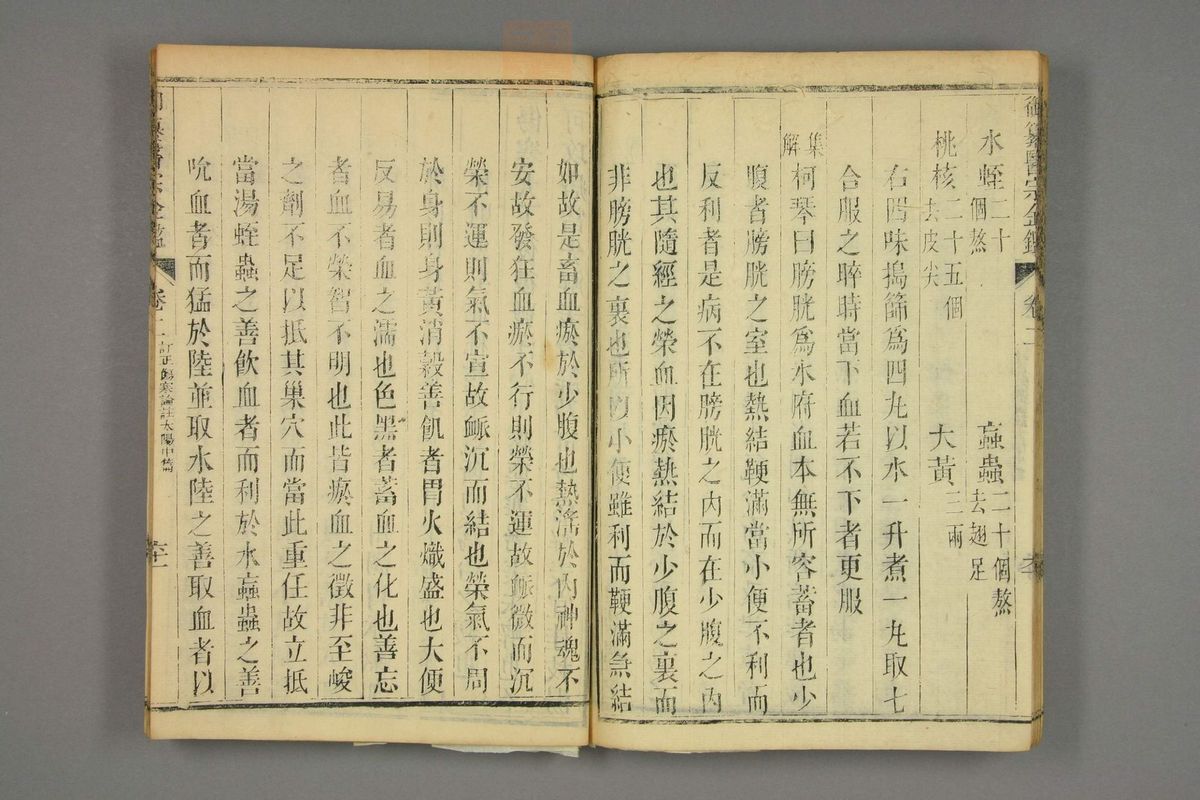 御纂醫宗金鑑 卷二
水蛭二十個熬 䖟蟲二十個熬去翅足
桃核二十五個去皮尖 大黃三兩
右四味搗篩爲四丸以水一升煮一丸取七
合服之晬時當下血若不下者更服
集解
柯琴曰膀胱爲水府血本無所容蓄者也少
腹者膀胱之室也熱結鞕滿當小便不利而
反利者是病不在膀胱之內而在少腹之內
也其隨經之榮血因瘀熱結於少腹之裏而
非膀胱之裏也所以小便雖利而鞕滿急結
如故是畜血瘀於少腹也熱淫於內神魂不
安故發狂血瘀不行則榮不運故脈微而沉
榮不運則氣不宣故脈沉而結也榮氣不周
於身則身黃消穀善飢者胃火熾盛也大便
反易者血之濡也色黑者蓄血之化也善忘
者血不榮智不明也此皆瘀血之徵非至峻
之劑不足以抵其巢穴而當此重任故立抵
當湯蛭蟲之善飲血者而利於水䖟蟲之善
吮血者而猛於陸並取水陸之善取血者以
卷二 訂正傷寒論註太陽中篇